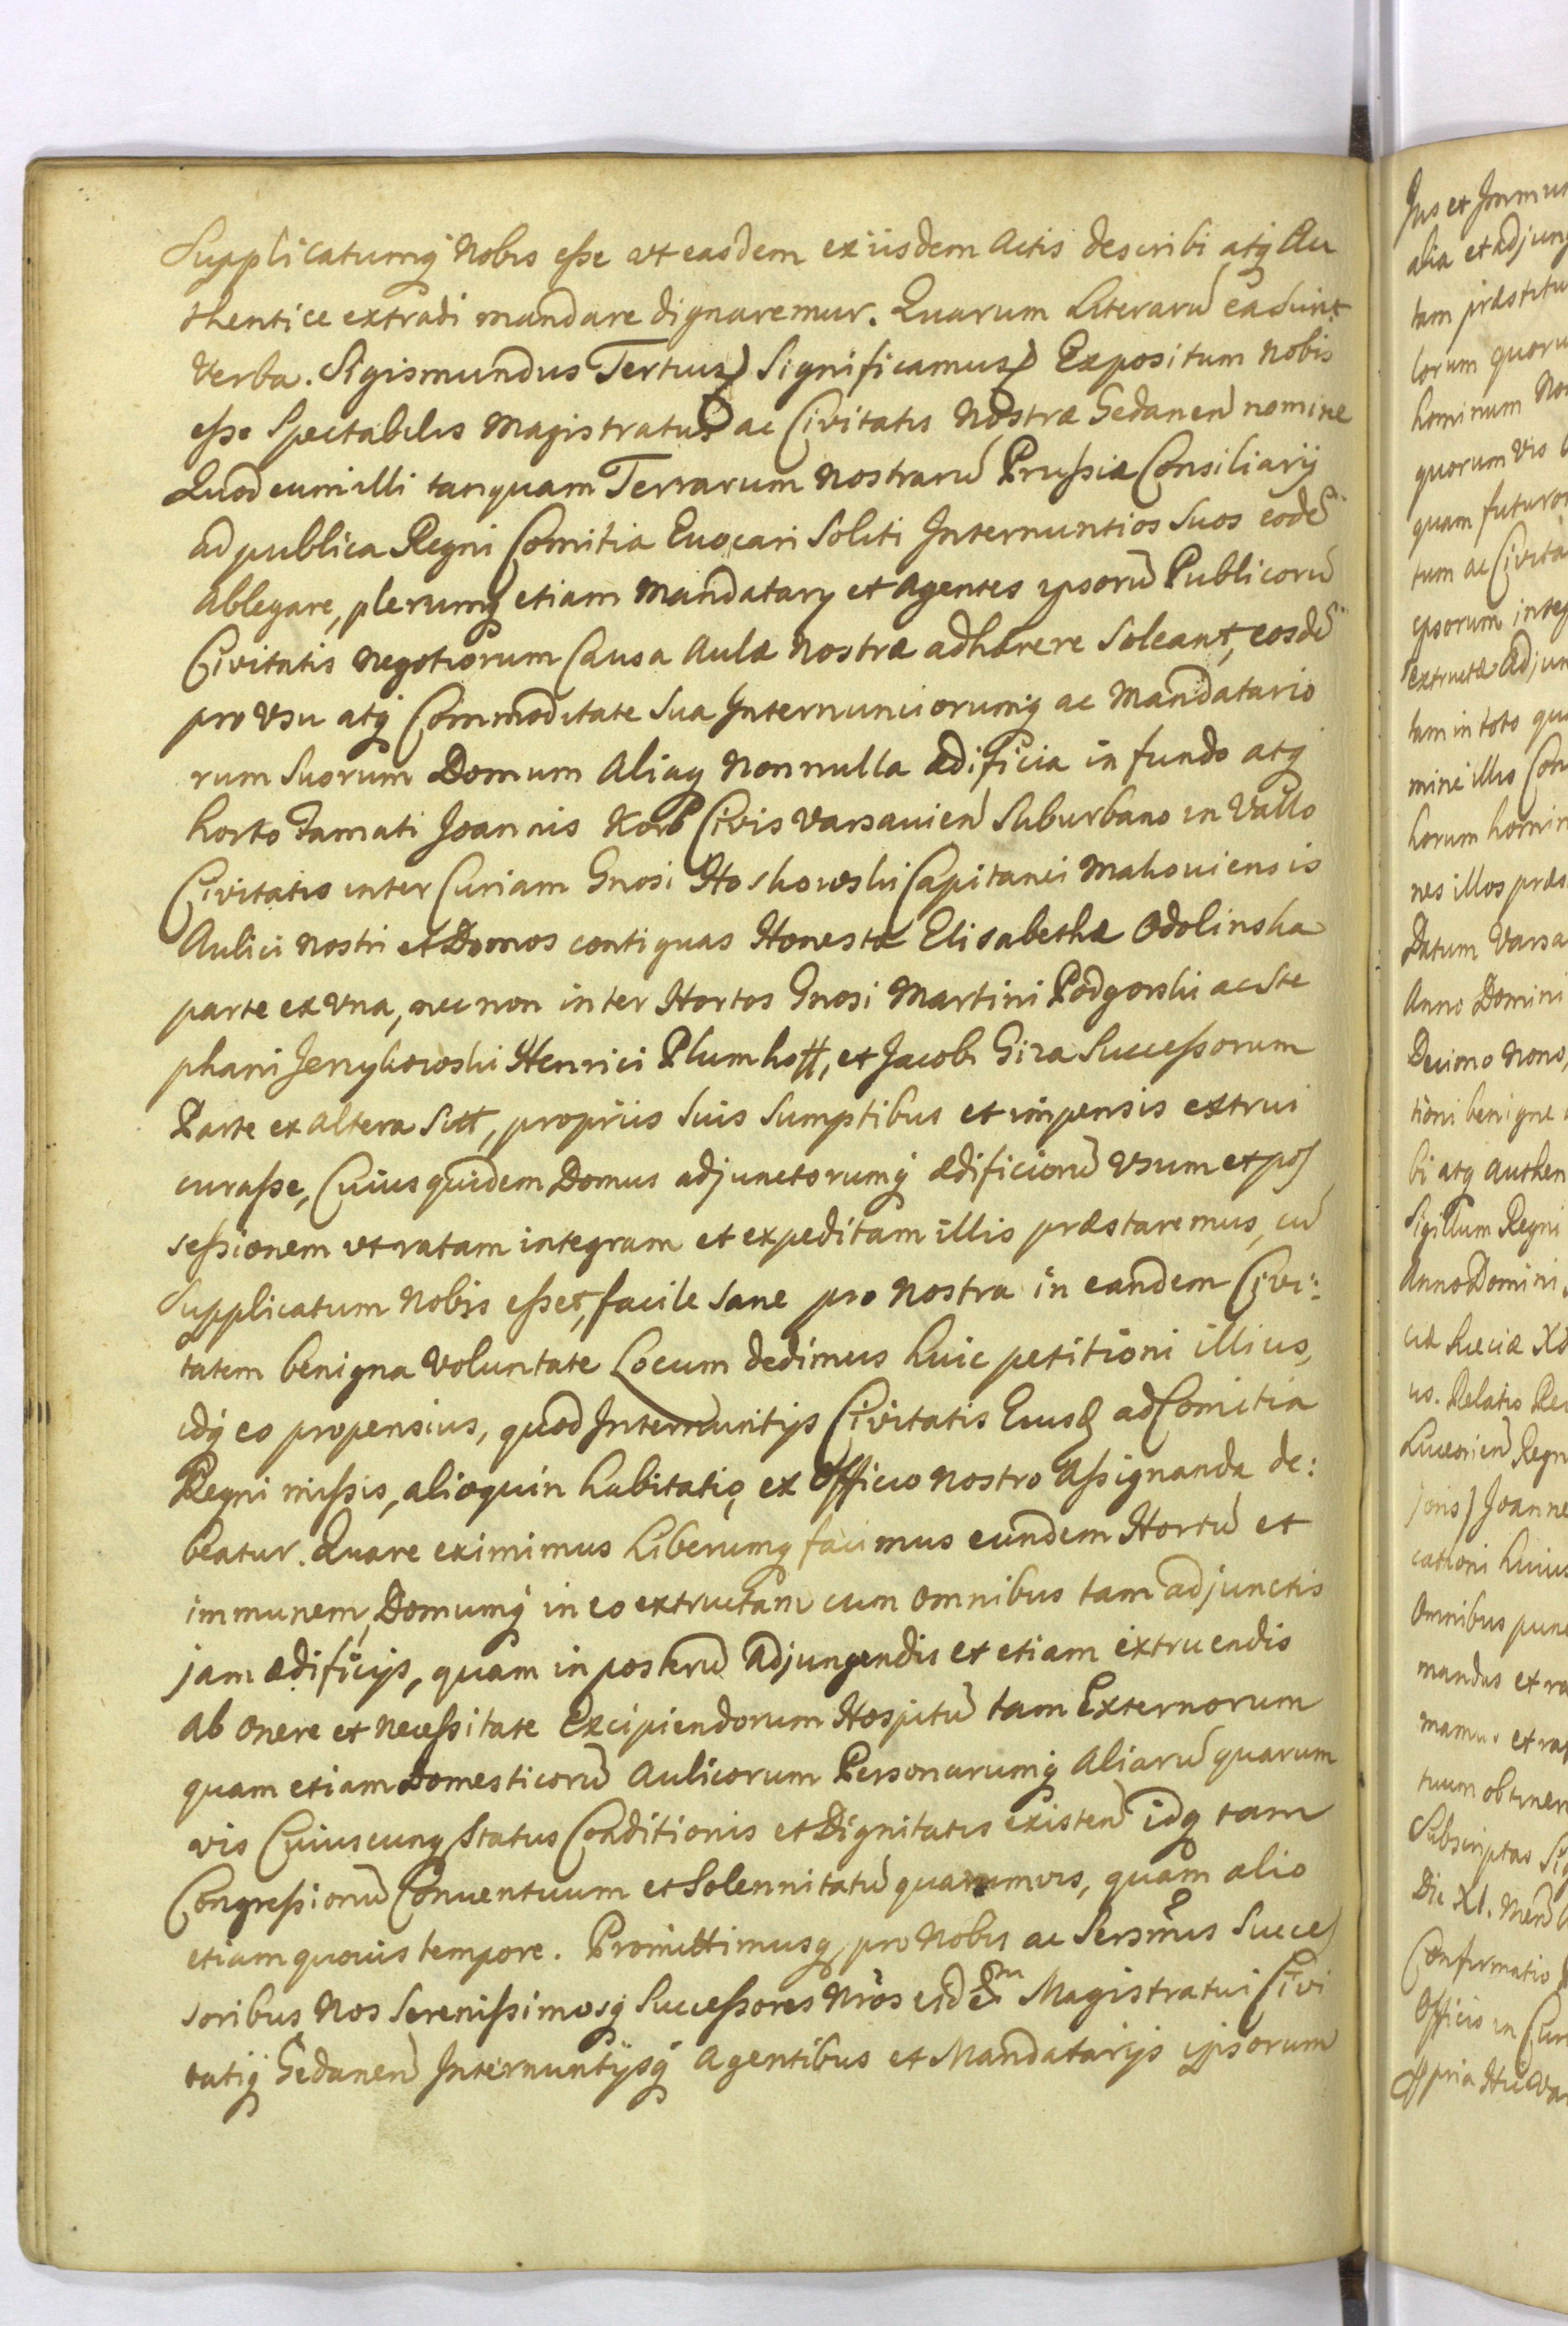 Supplicatumq́ Nobis esse vt easdem ex iisdem Actis describi atq́ Au
thentice extradi mandare dignaremur. Quarum Literarū ea sunt
Verba. Sigismundus Tertius Significamus Expositum Nobis
esse Spectabilis Magistratus ac Civitatis Nostræ Gedanen nomine
Quod cum illi tanquam Terrarum Nostrarū Prussiæ Consiliarij
ad publica Regni Comitia Euocari Soliti Internuntios Suos eodē
Ablegare, plerumq́ etiam Mandatarij et Agentes ipsorū Publicorū
Civitatis Negotiorum Causa Aulæ Nostræ adhærere Soleant, eosdē
pro vsu atq́ Commoditate Sua Internunciorumq́ ac Mandatario
rum Suorum Domum Aliaq́ Nonnulla ædificia in fundo atq́
horto Famati Joannis Korb Civis Varsauien Suburbano in Vallo
Civitatis inter Curiam Gnosi Capitanei Makouiensis
Aulici Nostri et Domos contiguas Honestæ Elisabethæ Odolinska
parte ex vna, nec non inter Hortos Gnosi Martini Podgorski ac Ste
phani Henrici Plumhoff, et Jacobi Giza Successorum
Parte ex altera Sitt, propriis Suis Sumptibus et impensis extrui
curasse, Cuius quidem Domus adjunctorumq́ ædificiorū Vsum et pos
sessionem vt ratam integram et expeditam illis præstaremus, cū
Supplicatum Nobis esset, facile Sane pro Nostra in eandem Civi:
tatem benigna Voluntate Locum dedimus huic petitioni illius,
idq́ eo propensius, quod Internuntijs Civitatis Eiusd ad Comitia
Regni missis, alioquin habitatio, ex Officio Nostro Assignanda de:
beatur. Quare eximimus Liberumq́ facimus eundem Hortū et
immunem, Domumq́ in eo extructam cum Omnibus tam adjunctis
jam ædificijs, quam in posterū Adjungendis et etiam extruendis
ab Onere et Necessitate Excipiendorum Hospitū tam Externorum
quam etiam Domesticorū Aulicorum Personarumq́ Aliarū quarum
vis Cuiuscunq́ Status Conditionis et Dignitatis existen idq́ tam
Congressionū Conuentuum et Solennitatū quarumvis, quam alio
etiam quouis tempore. Promittimusq́ pro Nobis ac Sersmis Succes
soribus Nos Serenissimosq́ Successores Nrōs eidem Magistratui Civi
tatiq́ Gedanen Internuntijsq́ Agentibus et Mandatarijs ipsorum
Jus et Immu
alia et adjung
tam præstitu
lorum quoru
hominum No
quorum vis
quam futuro
tum ac Civita
ipsorum integ
extructæ Adjun
tam in toto qua
mine illis Con
horum homin
nes illos præs
Datum Varsa
Anno Domini
Decimo Nono,
tioni benigne
bi atq́ Authen
Sigillum Regni
Anno Domini
ciæ Sueciæ
us. Relatio Re
Luceorien Regn
joris) Joanne
cationi huius
Omnibus punc
mandas et ra
mamus et rat
tuum obtinen
Subscriptas Si
Die XI. Men
Confirmatio
Officio in Cur